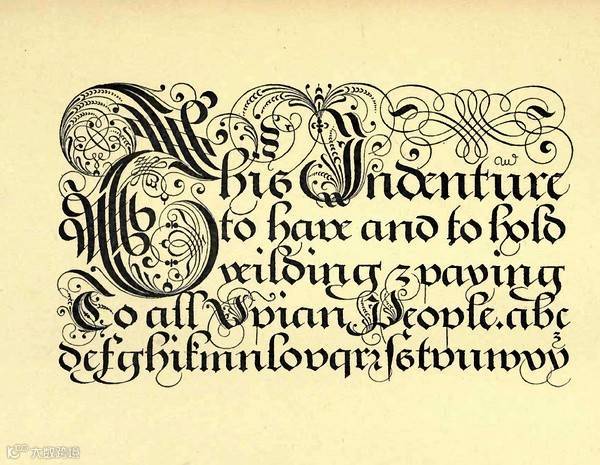 This Indenture
w
to have and to hold
yeilding & paying
To all Xpian People. abc
defghikmnlopqrzſstvuwxyz
大数跨境